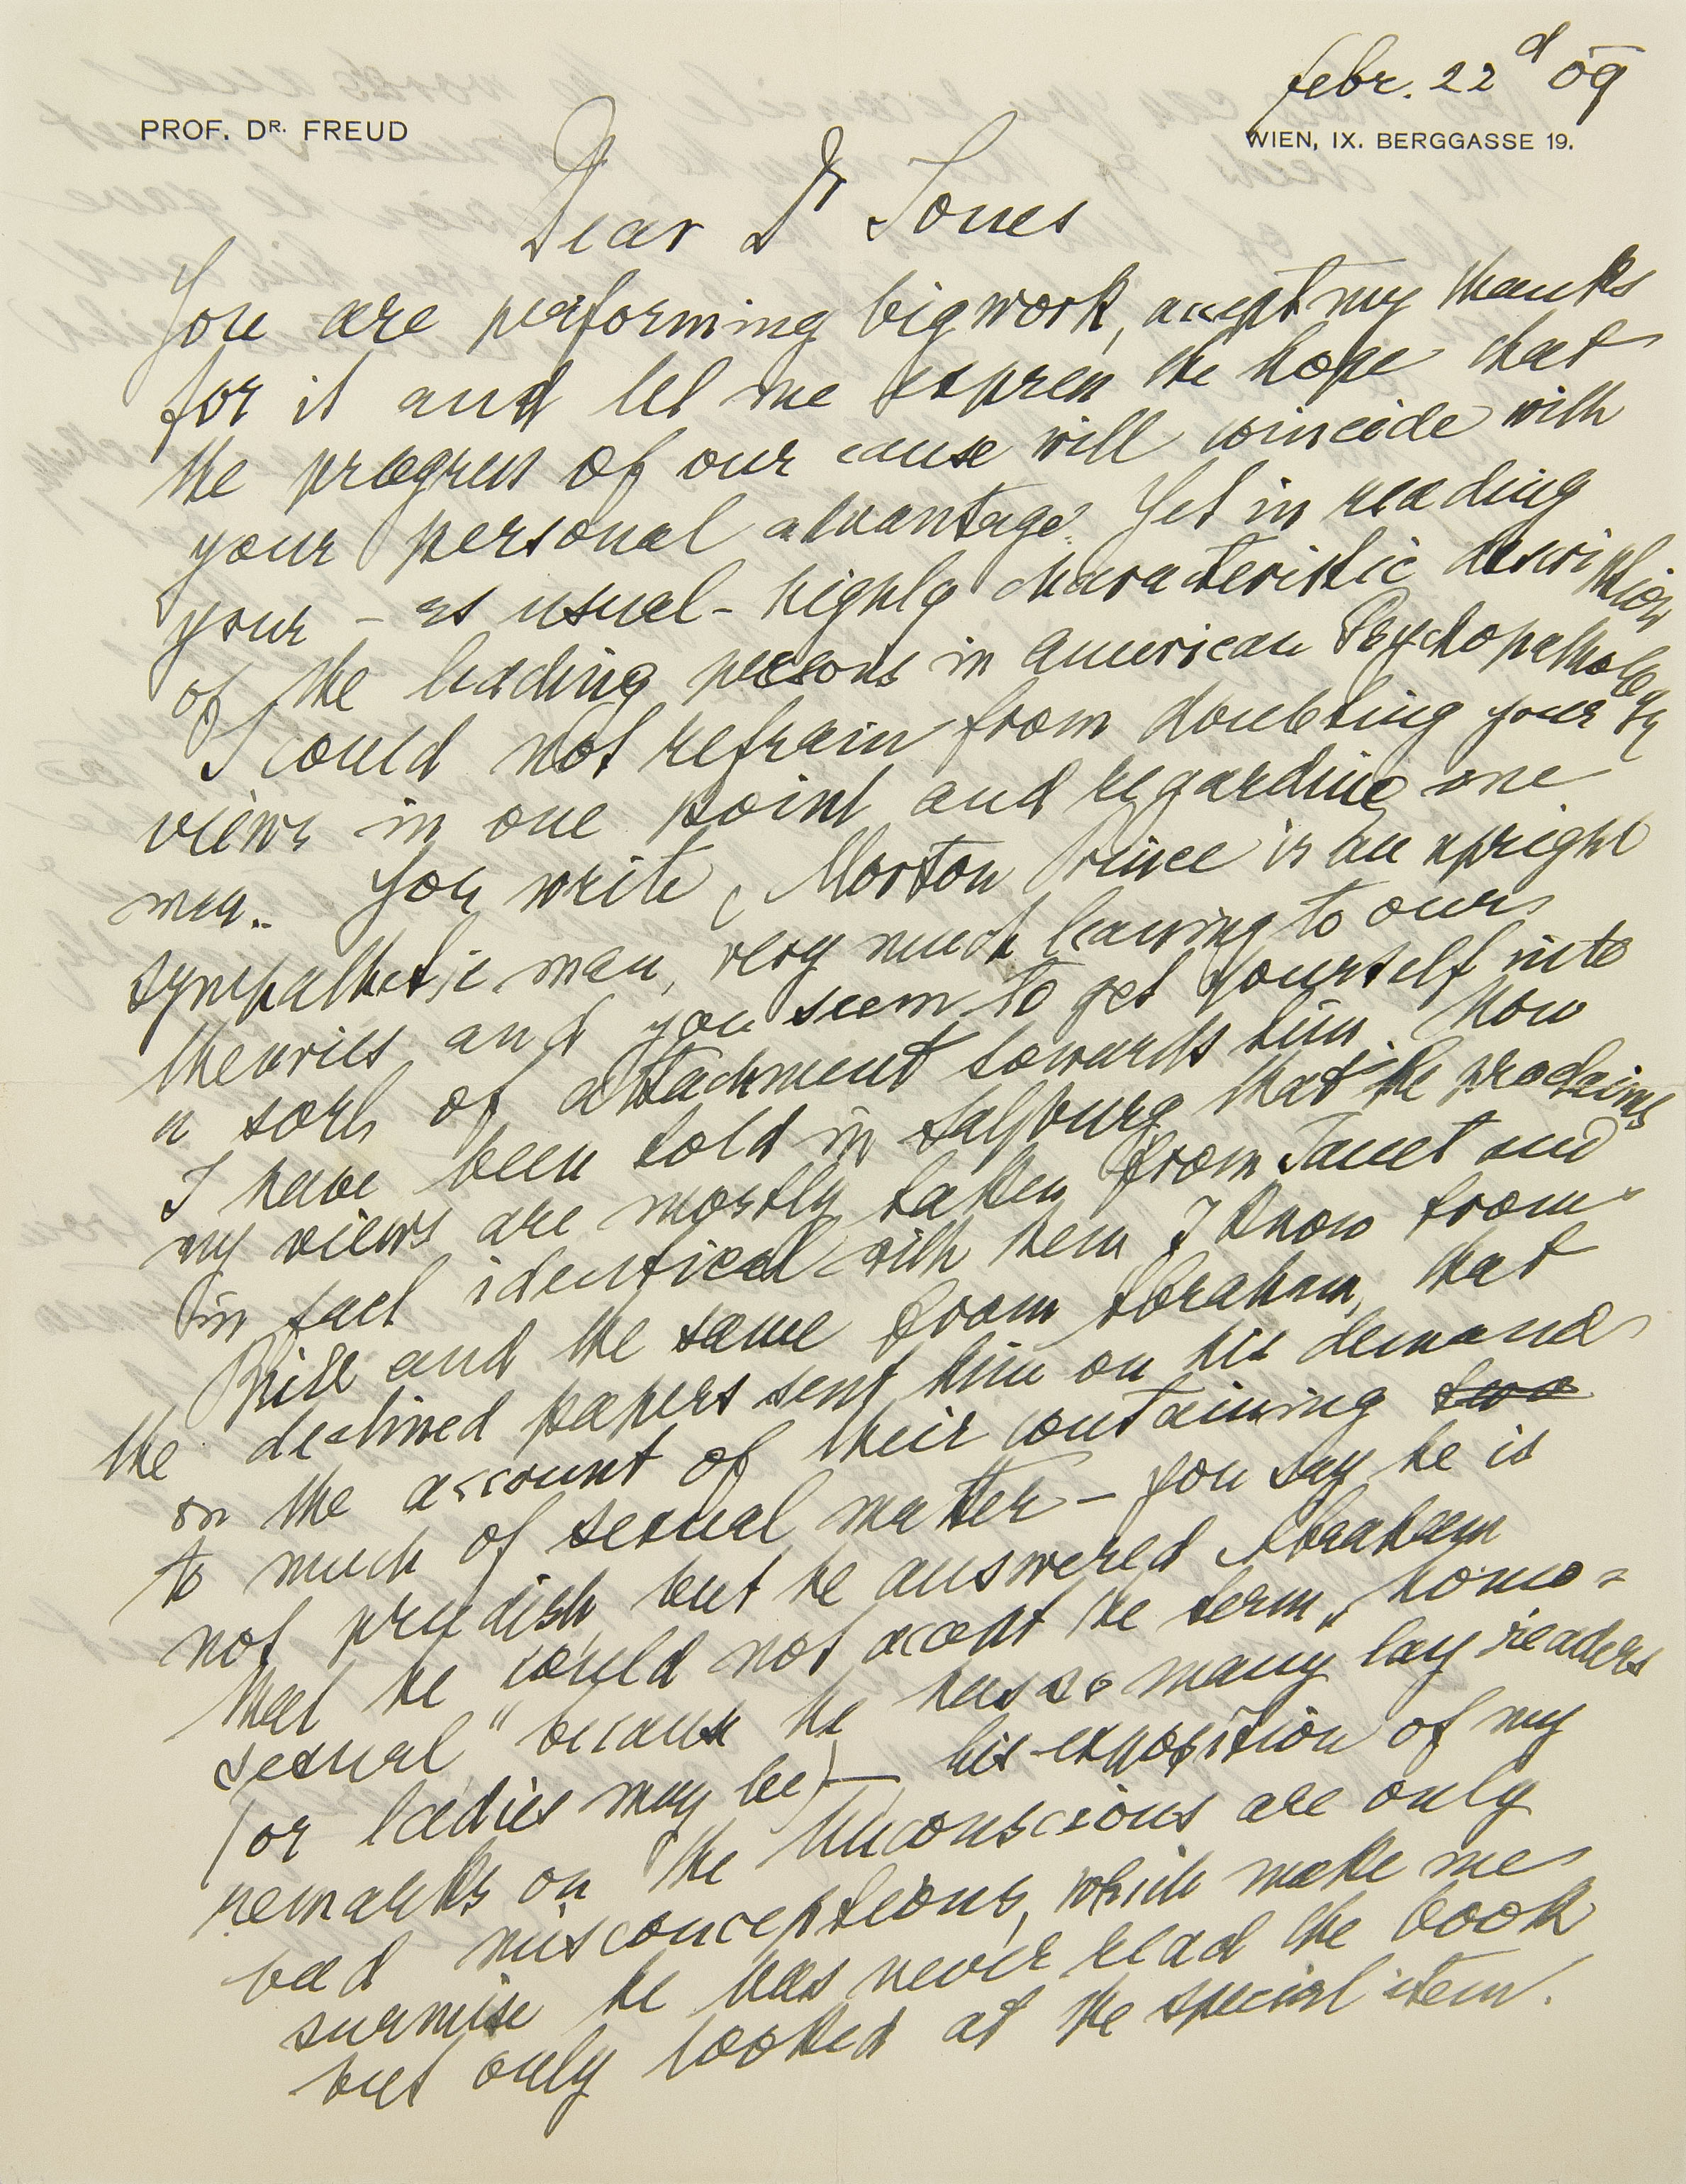 febr. 22d 09
PROF. DR. FREUD
WIEN, IX. BERGGASSE 19.
Dear Dr Jones
You are performing big work, accept my thanks
for it and let me express the hope that
the progress of our cause will coincide with
your personal advantage. Yet in reading
your – as usual – highly characteristic description
of the leading persons in american Psychopathology
I could not refrain from doubting your
views in one point and regarding one
man. You write, Morton Prince is an upright
sympathetic man, very much leaning to our
theories and you seem to get yourself into
a sort of attachment towards him. Now
I have been told in Salzburg that he proclaims
my views are mostly taken from Janet and
in fact identical with them I know from
Brill and the same from Abraham, that
he declined papers sent him on his demand
on the account of their containing
to much of sexual matter – you say he is
not prudish, but he answered Abraham
that he could not accept the term „homo=
sexual" because he has so many lay readers
(or ladies may be) — his exposition of my
remarks on the Unconscious are only
bad misconceptions, which make me
surmise he has never read the book
but only looked at the special item.